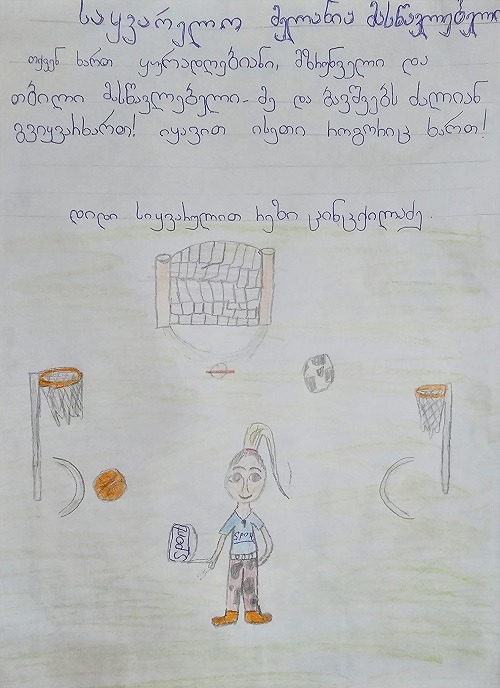 საყვარელო მელანია მასწავლებელო
თქვენ ხართ ყურადღებიანი, მზრუნველი და
თბილი მასწავლებელი. მე და ბავშვებს ძალიან
გვიყვარხართ! იყავით ისეთი როგორიც ხართ!
დიდი სიყვარულით რეზი კინკქილაძე.
Sport